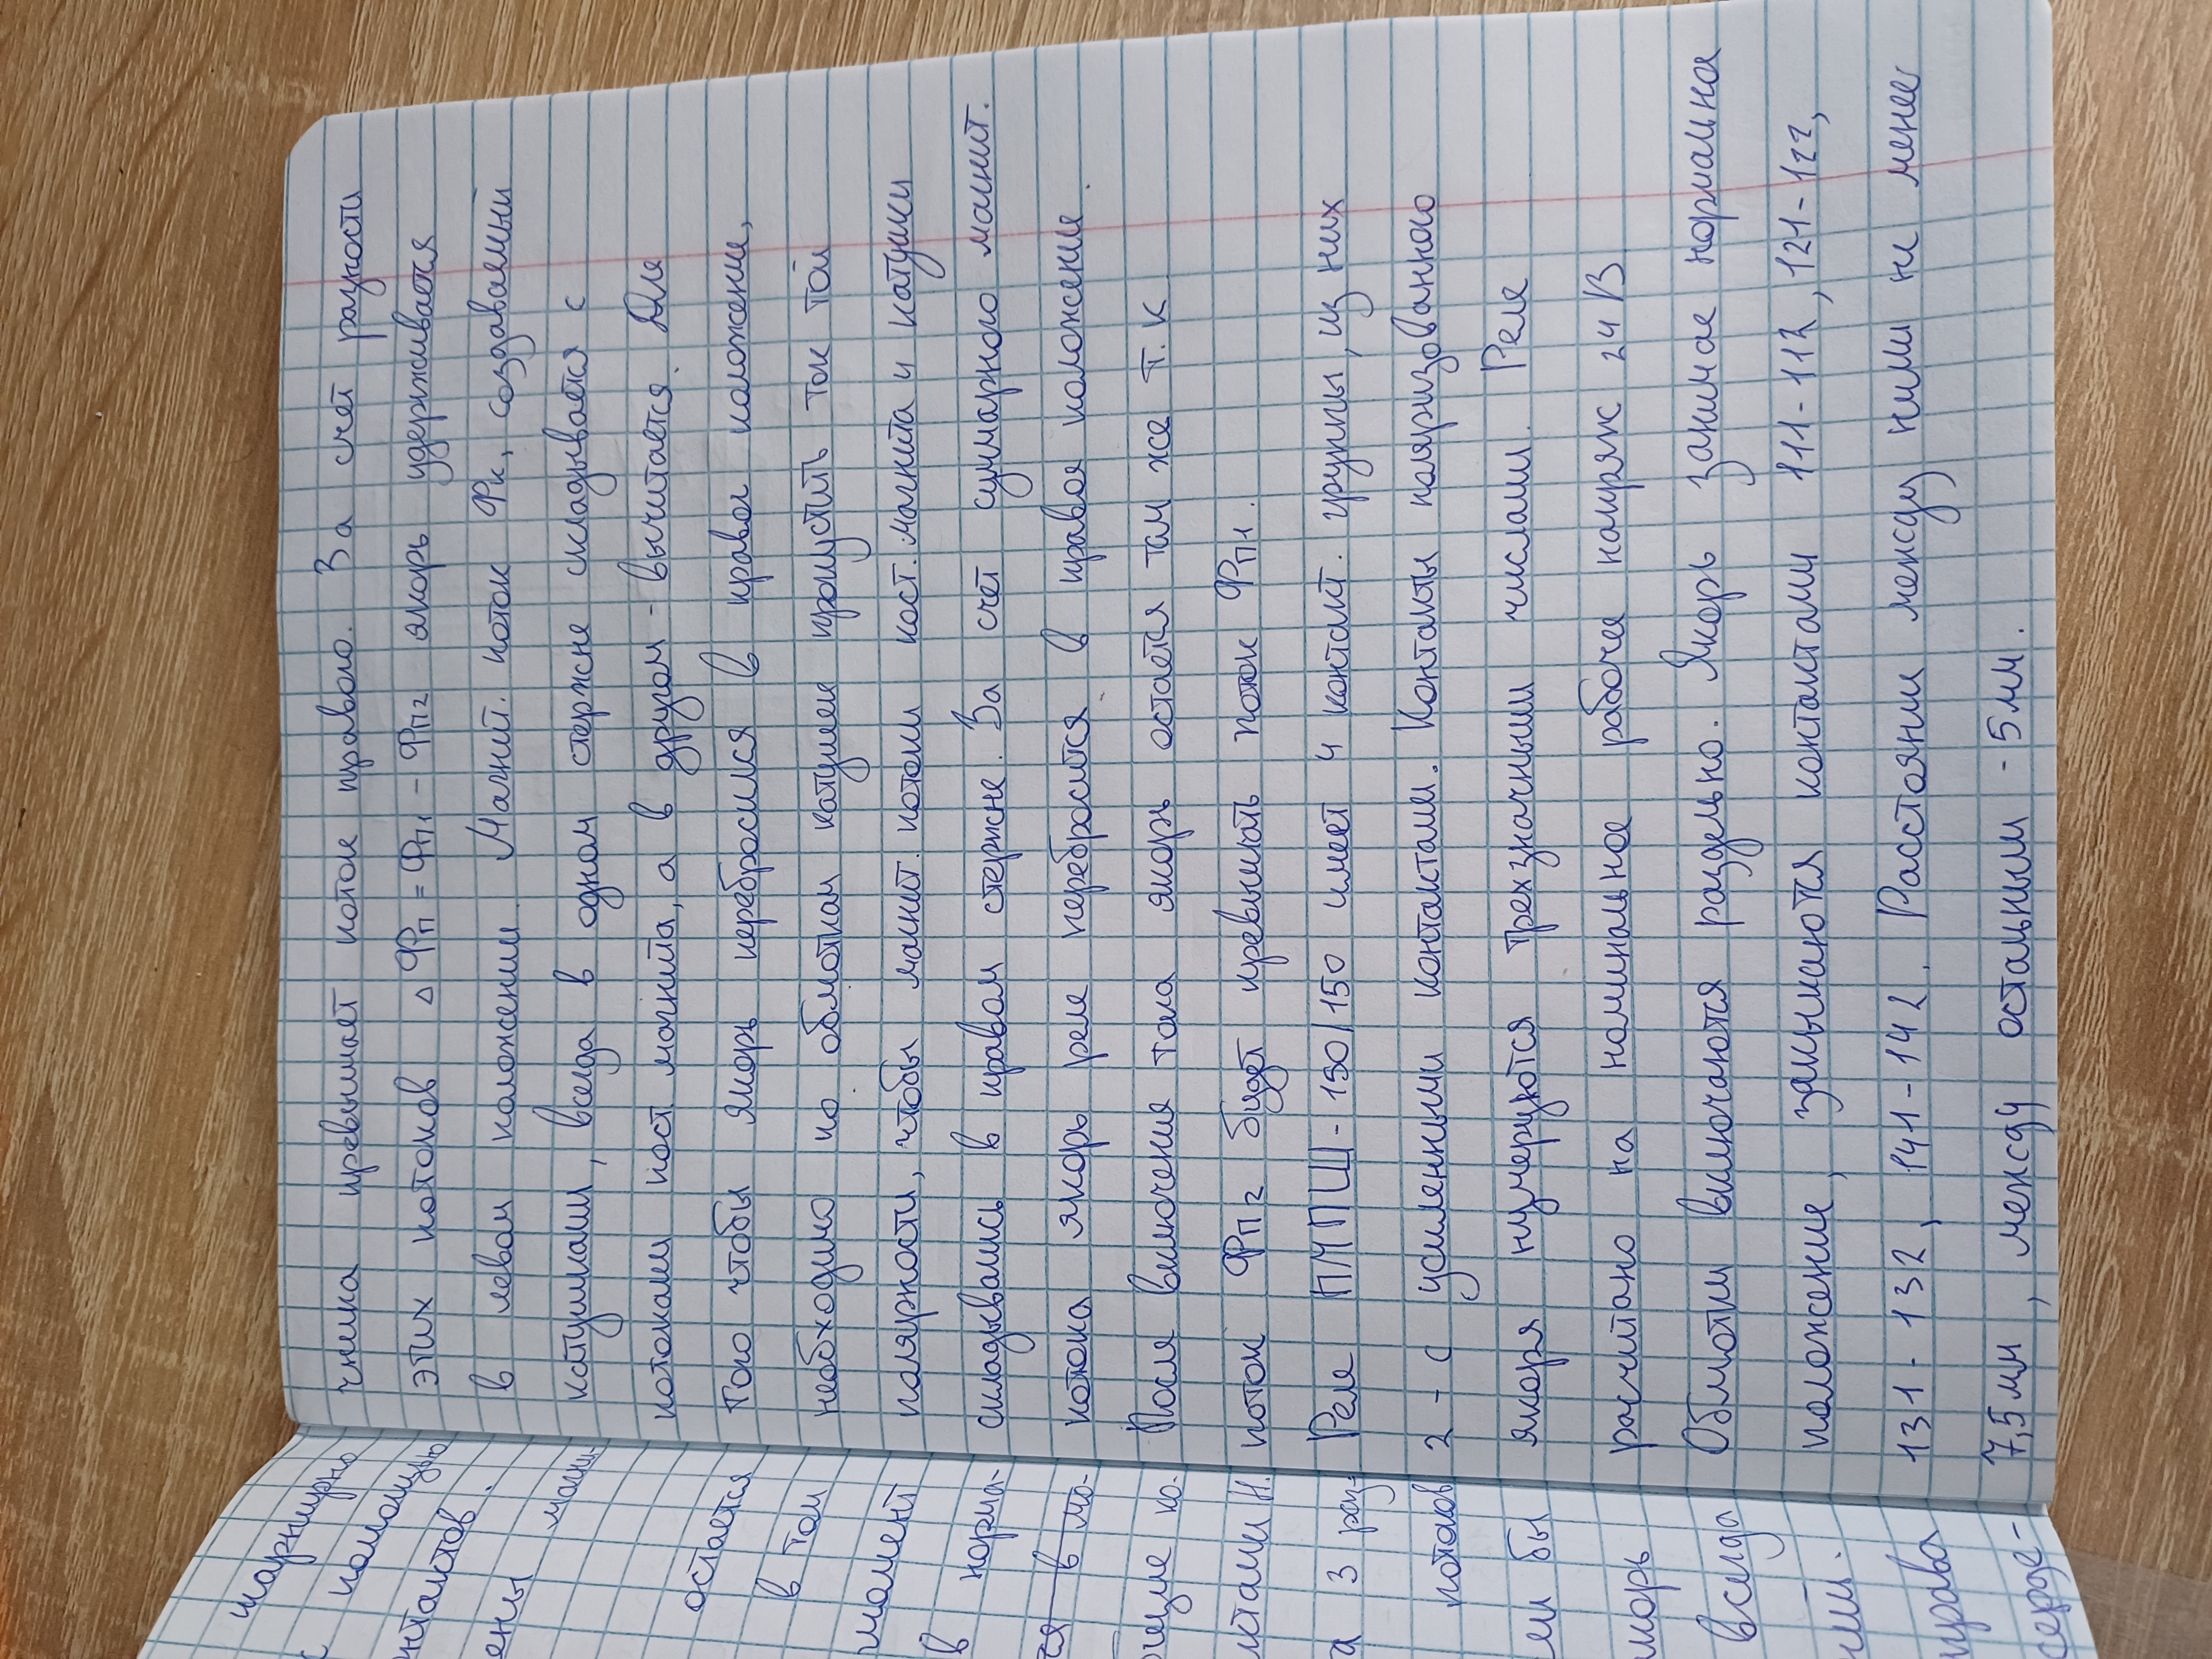 шарнирно
помощью
нтактов.
ены магни-
остается
в том
момент
в норма-
ся в ма-
щие ко-
ктами Н.
а 3 раз-
потоков
ли бы
якорь
всегда
ний.
права
серде-
чника превышает поток правого. За счет разности
этих потоков △Фп = Фп1 - Фп2 якорь удерживается
в левом положении. Магнит. поток Фк, создаваемый
катушками, всегда в одном стержне складывается с
потоками пост. магнита, а в другом - вычитается. Для
того чтобы якорь перебросился в правое положение,
необходимо по обмоткам катушек пропустить ток той
полярности, чтобы магнит. потоки пост. магнита и катушки
складывались в правом стержне. За счет суммарного магнит.
потока якорь реле перебросится в правое положение.
После выключения тока якорь остается там же т. к
поток Фп2 будет превышать поток Фп1.
Реле ПМПШ-150/150 имеет 4 контакт. группы, из них
2 - с усиленными контактами. Контакты поляризованного
якоря нумеруются трехзначными числами. Реле
расчитано на номинальное рабочее напряж 24 В
Обмотки включаются раздельно. Якорь занимае нормальное
положение, замыкаются контактами 111-112, 121-122,
131-132, 141-142. Расстоянии между ними не менее
7,5 мм, между остальными - 5 мм.